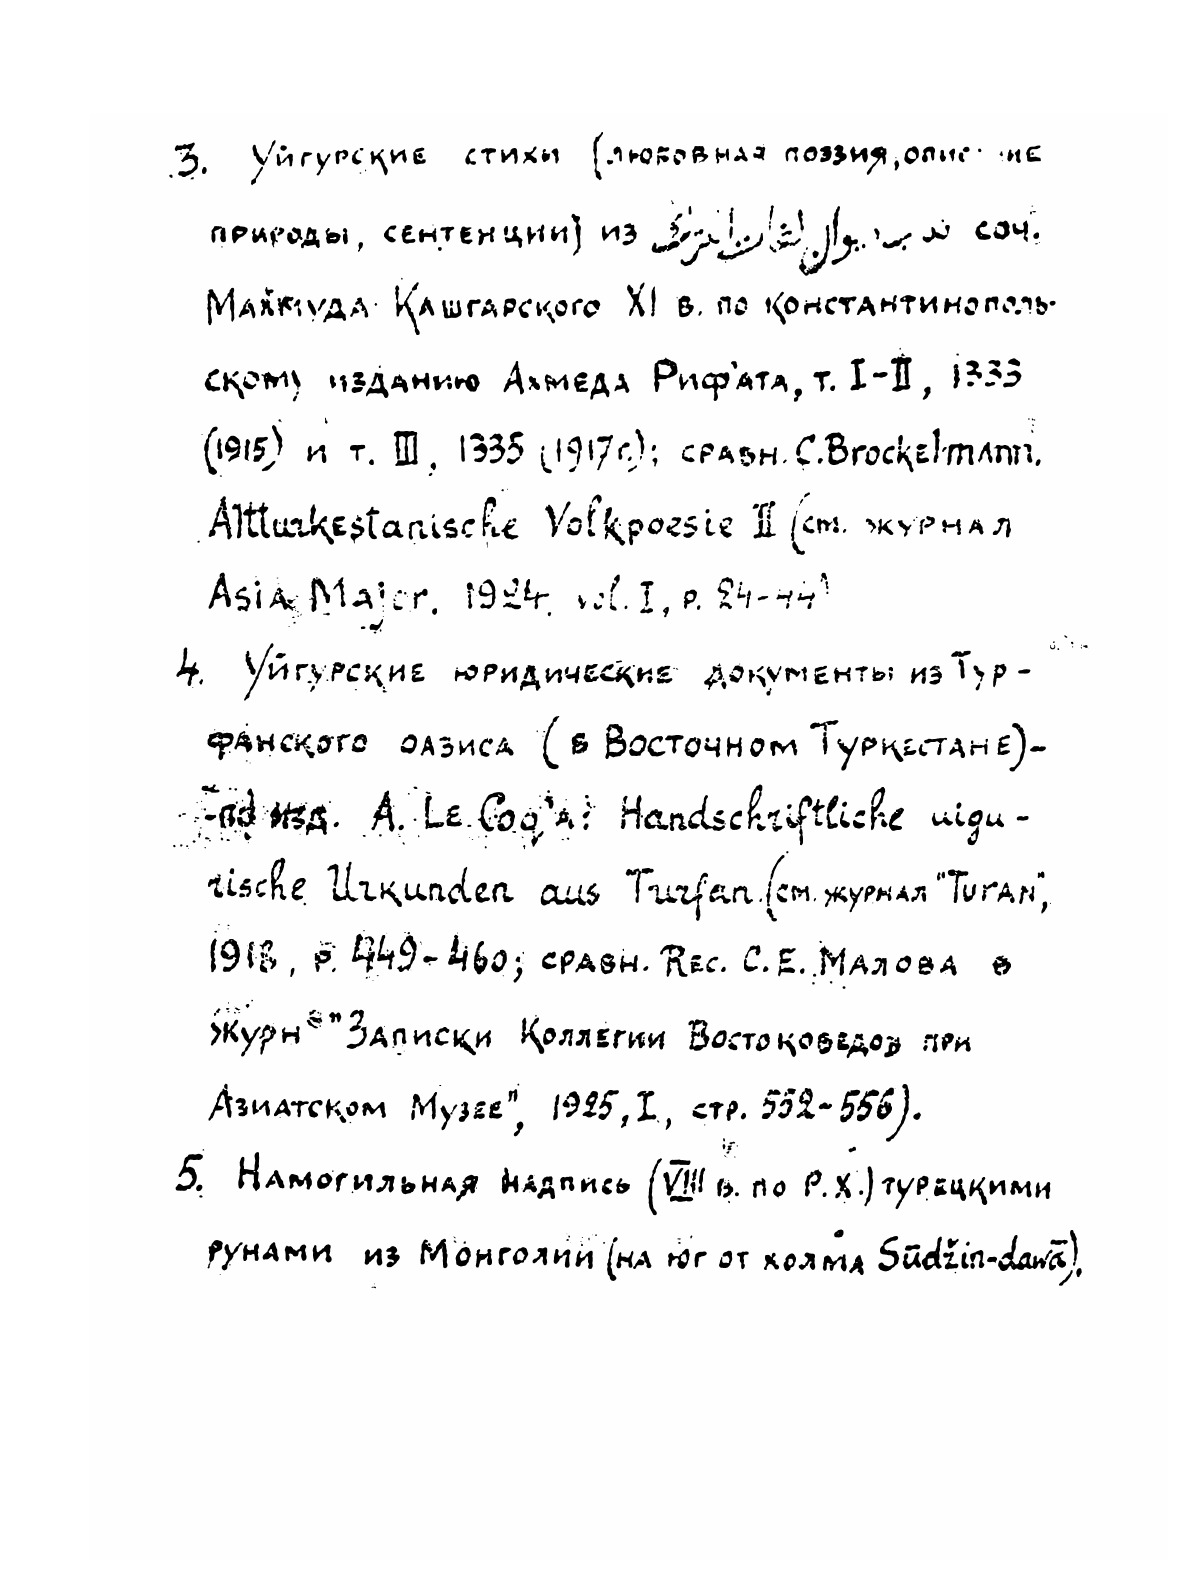 3. Уйгурские стихи (любовная поэзия,
природы, сентенции) из соч.
Махмуда Кашгарского XI в. по константинополь-
скому изданию Ахмеда Риф'ата, т. I-II, 1333
(1915) и т. III, 1335 (1917г.); сравн. C. Brockelmann.
Altturkestanische Volkpoesie II (см. журнал
Asia Major. 1924. vol. I, p. 24-44)
4. Уйгурские юридические документы из Тур-
фанского оазиса (в Восточном Туркестане)-
-по изд. A. Le Coq'a: Handschriftliche uigu-
rische Urkunden aus Turfan. (см. журнал "Turan",
1918, p. 449-460; сравн. Rec. С. Е. Малова в
журн "Записки Коллегии Востоковедов при
Азиатском Музее", 1925, I, стр. 552-556).
5. Намогильная надпись (VIII в. по Р. Х.) турецкими
рунами из Монголии (на юг от холма Sūdžin-dawā).